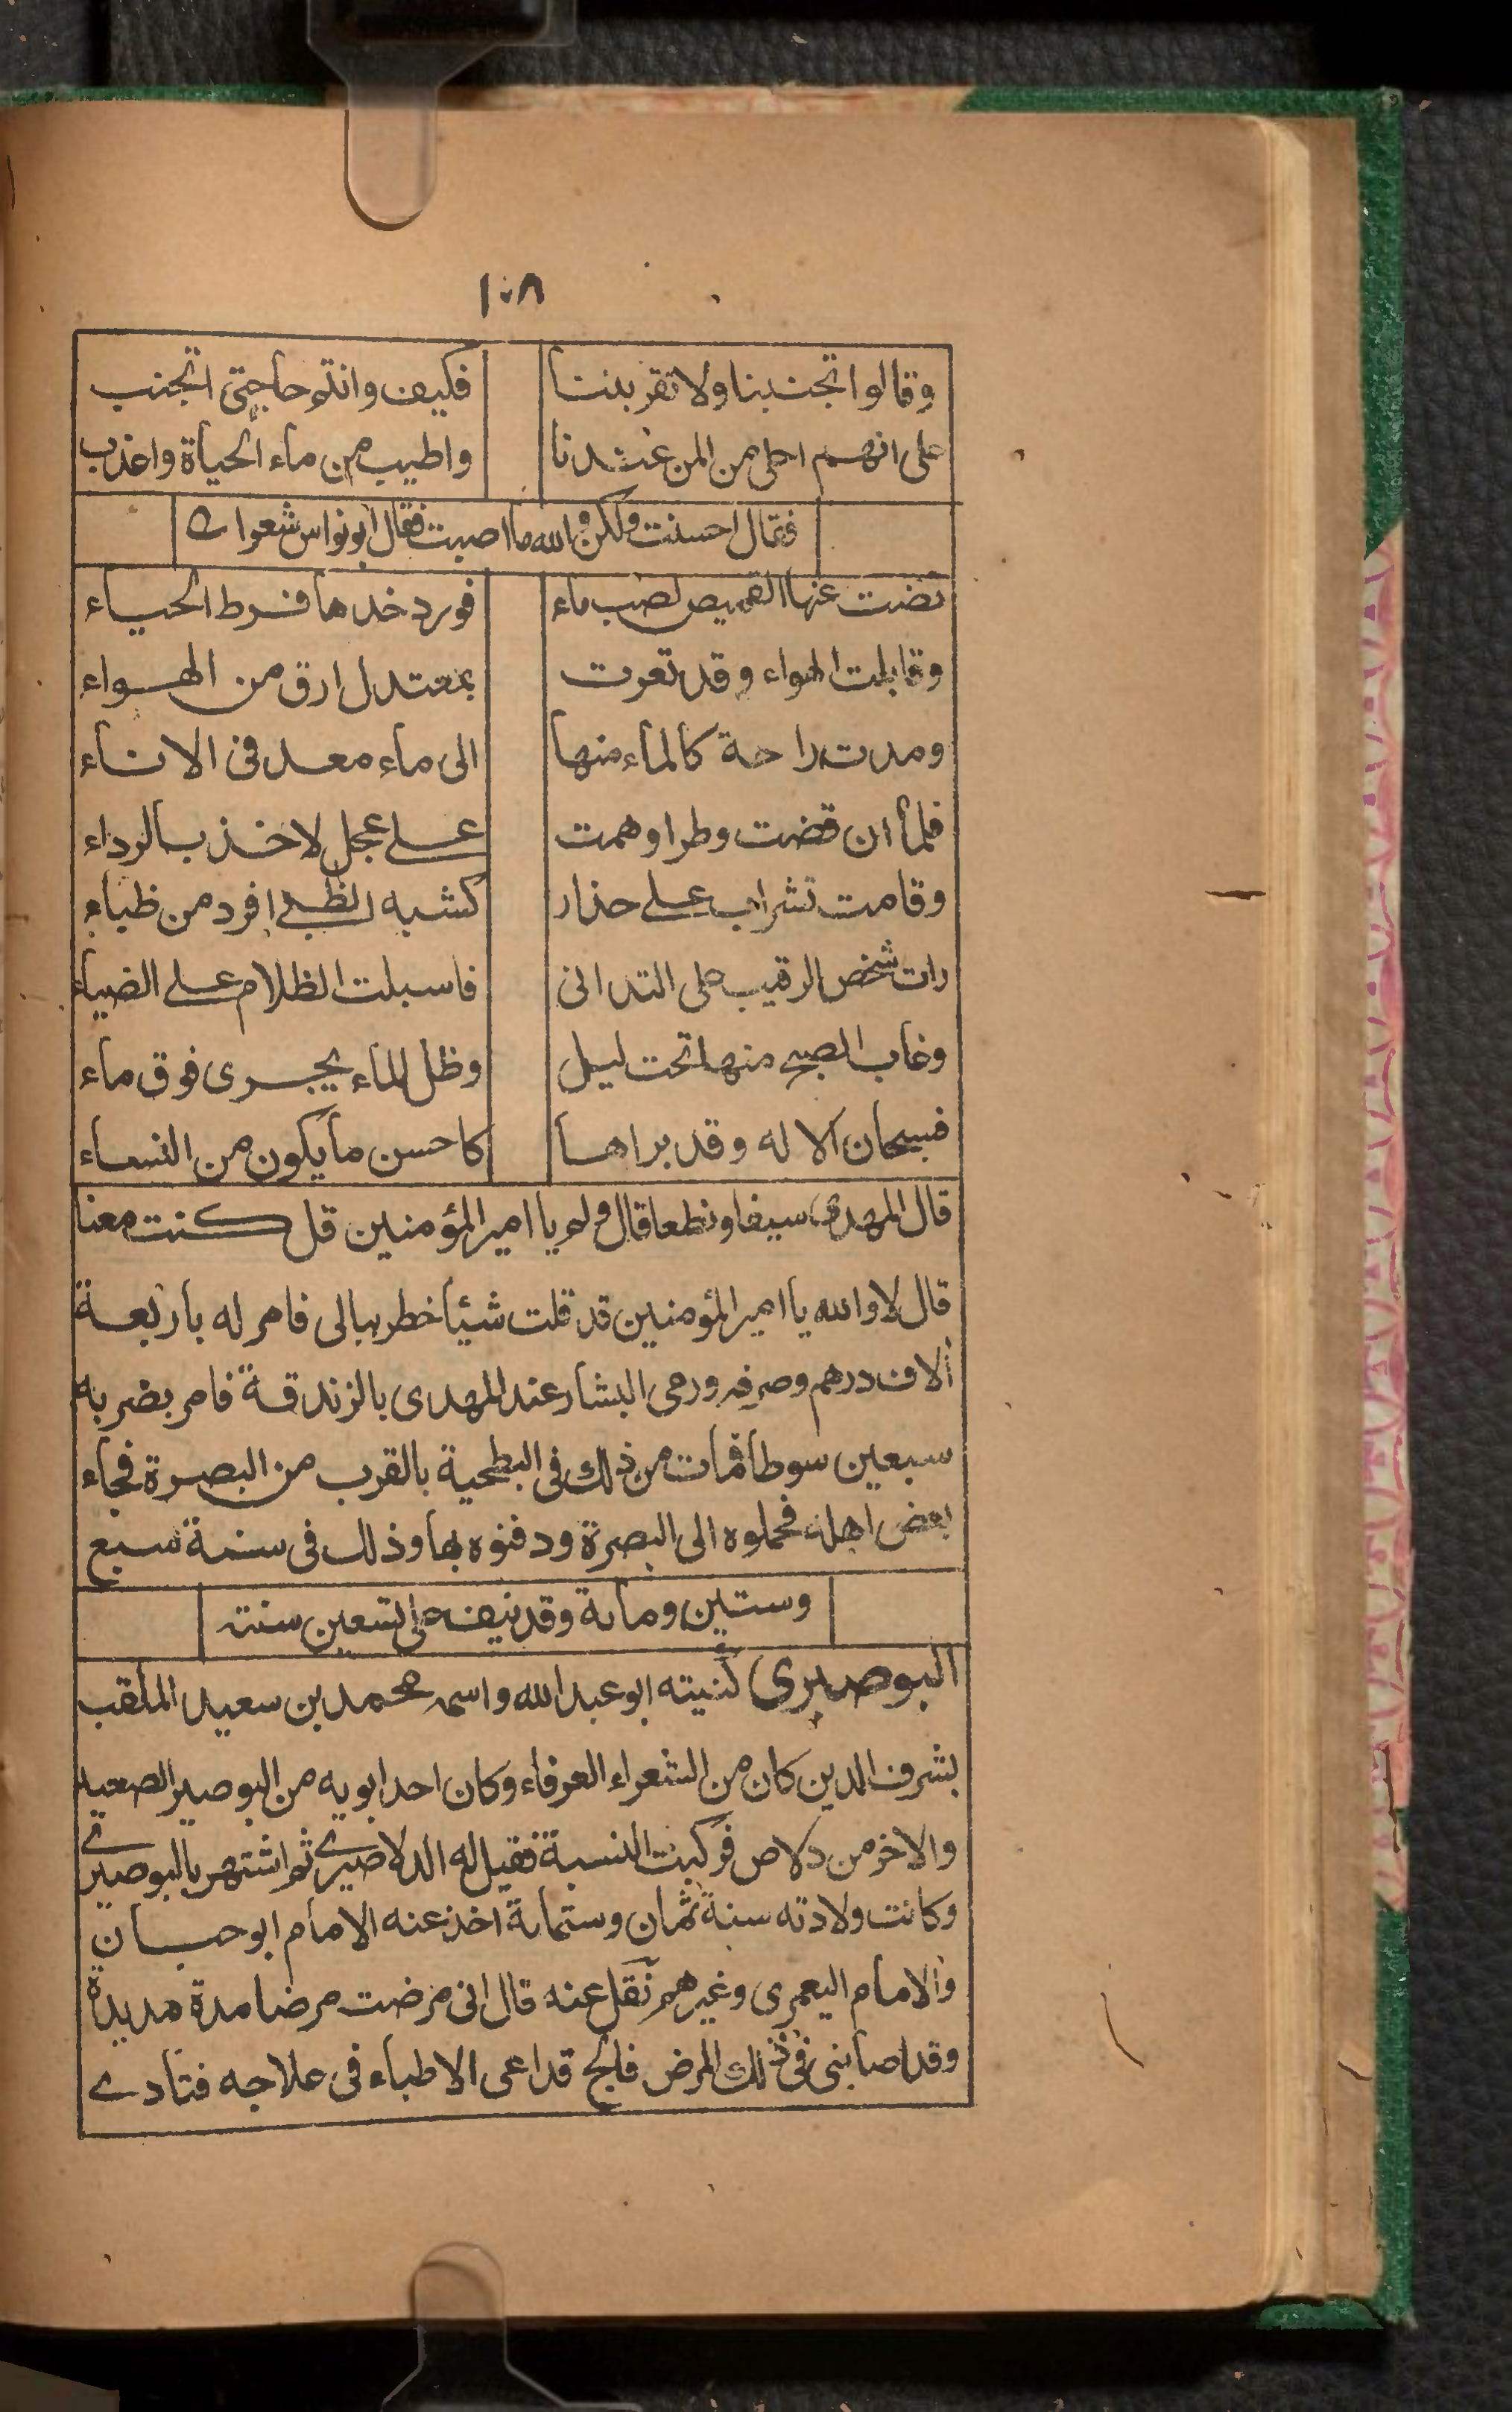 ١٠٨
وقالوا تجنبنا ولا تقربننا فكيف وانتم حاجتي اتجنب
على انهم احلى من المن عندنا واطيب من ماء الحياة واعذب
فقال احسنت ولكن والله ما اصبت فقال ابونواس شعرا
نضت عنها القميص لصب ماء فورد خدها فرط الحياء
وقابلت الهواء وقد تعرت بمعتدل ارق من الهواء
ومدت راحة كالماء منها الى ماء معد في الاناء
فلما ان قضت وطرا وهمت على عجل لاخذ بالرداء
وقامت تشراب على حذار كشبه الظبي افرد من ظباء
رات شخص الرقيب على التداني فاسبلت الظلام على الضياء
وغاب الصبح منها تحت ليل وظل الماء يجرى فوق ماء
فسبحان الاله وقد براها كاحسن ما يكون من النساء
قال المهدى سيفا ونطعا قال ولم يا امير المؤمنين قل كنت معنا
قال لا والله يا امير المؤمنين قد قلت شيئا خطر ببالى فامر له باربعة
آلاف درهم وصرفه ورمى البشار عند المهدى بالزندقة فامر بضربه
سبعين سوطا فمات من ذلك فى البطحية بالقرب من البصرة فجاء
بعض اهله فحملوه الى البصرة ودفنوه بها وذلك فى سنة سبع
وستين ومائة وقد نيف على تسعين سنة
البوصيرى كنيته ابو عبد الله واسمه محمد بن سعيد الملقب
بشرف الدين كان من الشعراء العرفاء وكان احد ابويه من البوصير الصعيد
والاخر من دلاص فركبت النسبة فقيل له الدلاصيرى ثم اشتهر بالبوصيرى
وكانت ولادته سنة ثمان وستمائة اخذ عنه الامام ابو حيان
والامام اليعمرى وغيرهم نقل عنه قال انى مرضت مرضا مدة مديدة
وقد اصابنى فى ذلك المرض فالج قد اعى الاطباء فى علاجه فتادے